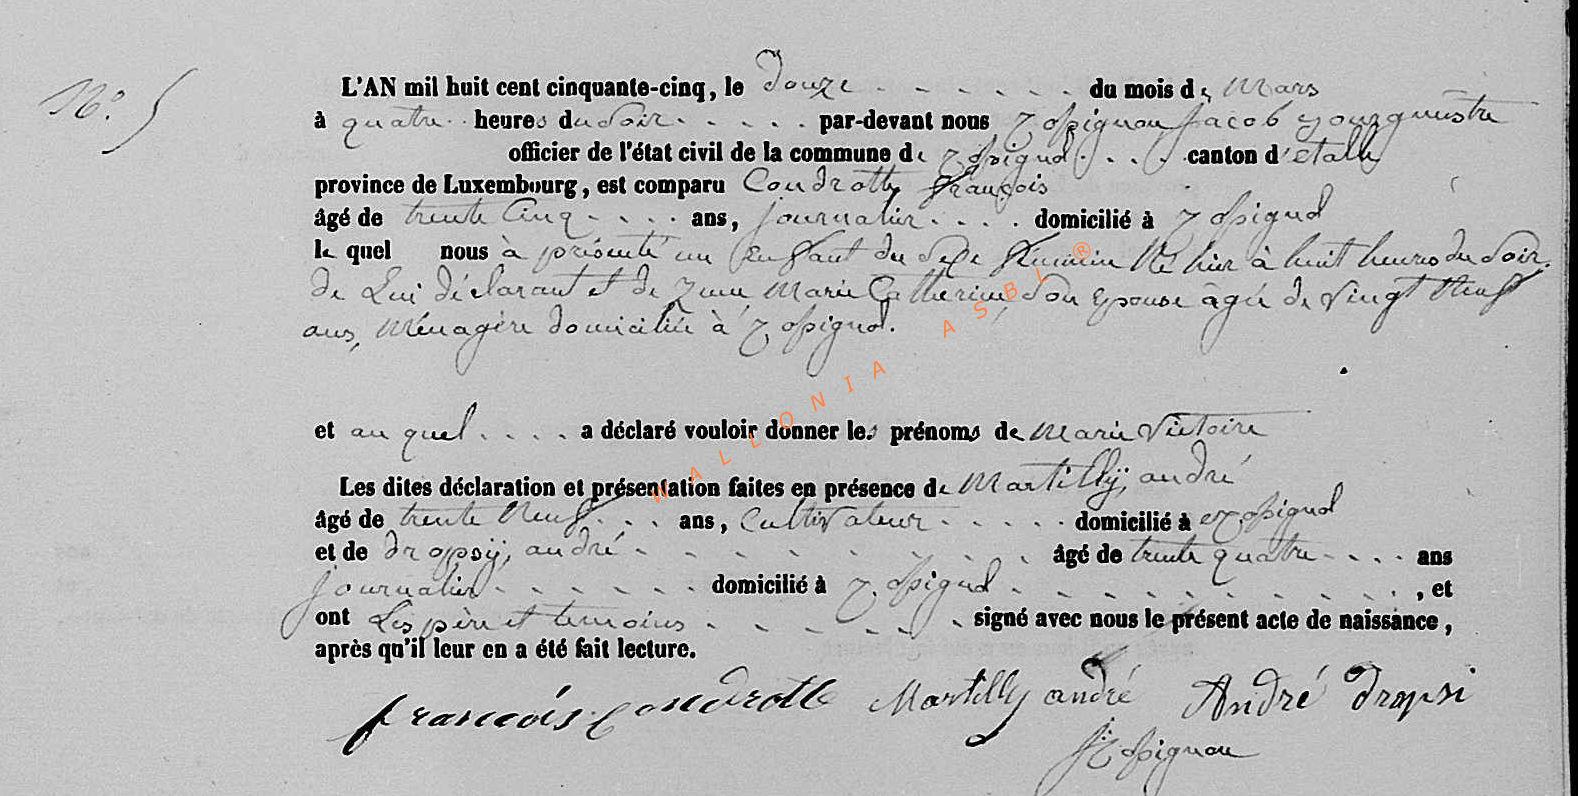 N.º 5
L'AN mil huit cent cinquante-cinq, le douze du mois de Mars
à quatre heures du Soir par-devant nous Rossignon Jacob Bourgmestre
officier de l'état civil de la commune de Rossignol canton d'étalle
province de Luxembourg, est comparu Condrotte François
âgé de trente Cinq ans, journalier domicilié à Rossignol
le quel nous à présenté un Enfant du Sexe Feminin Né hier à huit heures du Soir.
de Lui déclarant et de Marie Catherine, Son Epouse âgée de Vingt Neuf
ans, Ménagère domiciliée à Rossignol.
et au quel a déclaré vouloir donner les prénoms de Marie Victoire
Les dites déclaration et présentation faites en présence de Martilly, andré
âgé de trente Neuf ans, Cultivateur domicilié à Rossignol
et de dropsy, andré âgé de trente quatre ans
journalier domicilié à Rossignol, et
ont Les père et temoins signé avec nous le présent acte de naissance,
après qu'il leur en a été fait lecture.
françois Condrotte Martilly andré André dropsi
J Rossignon
WALLONIA ASBL ®